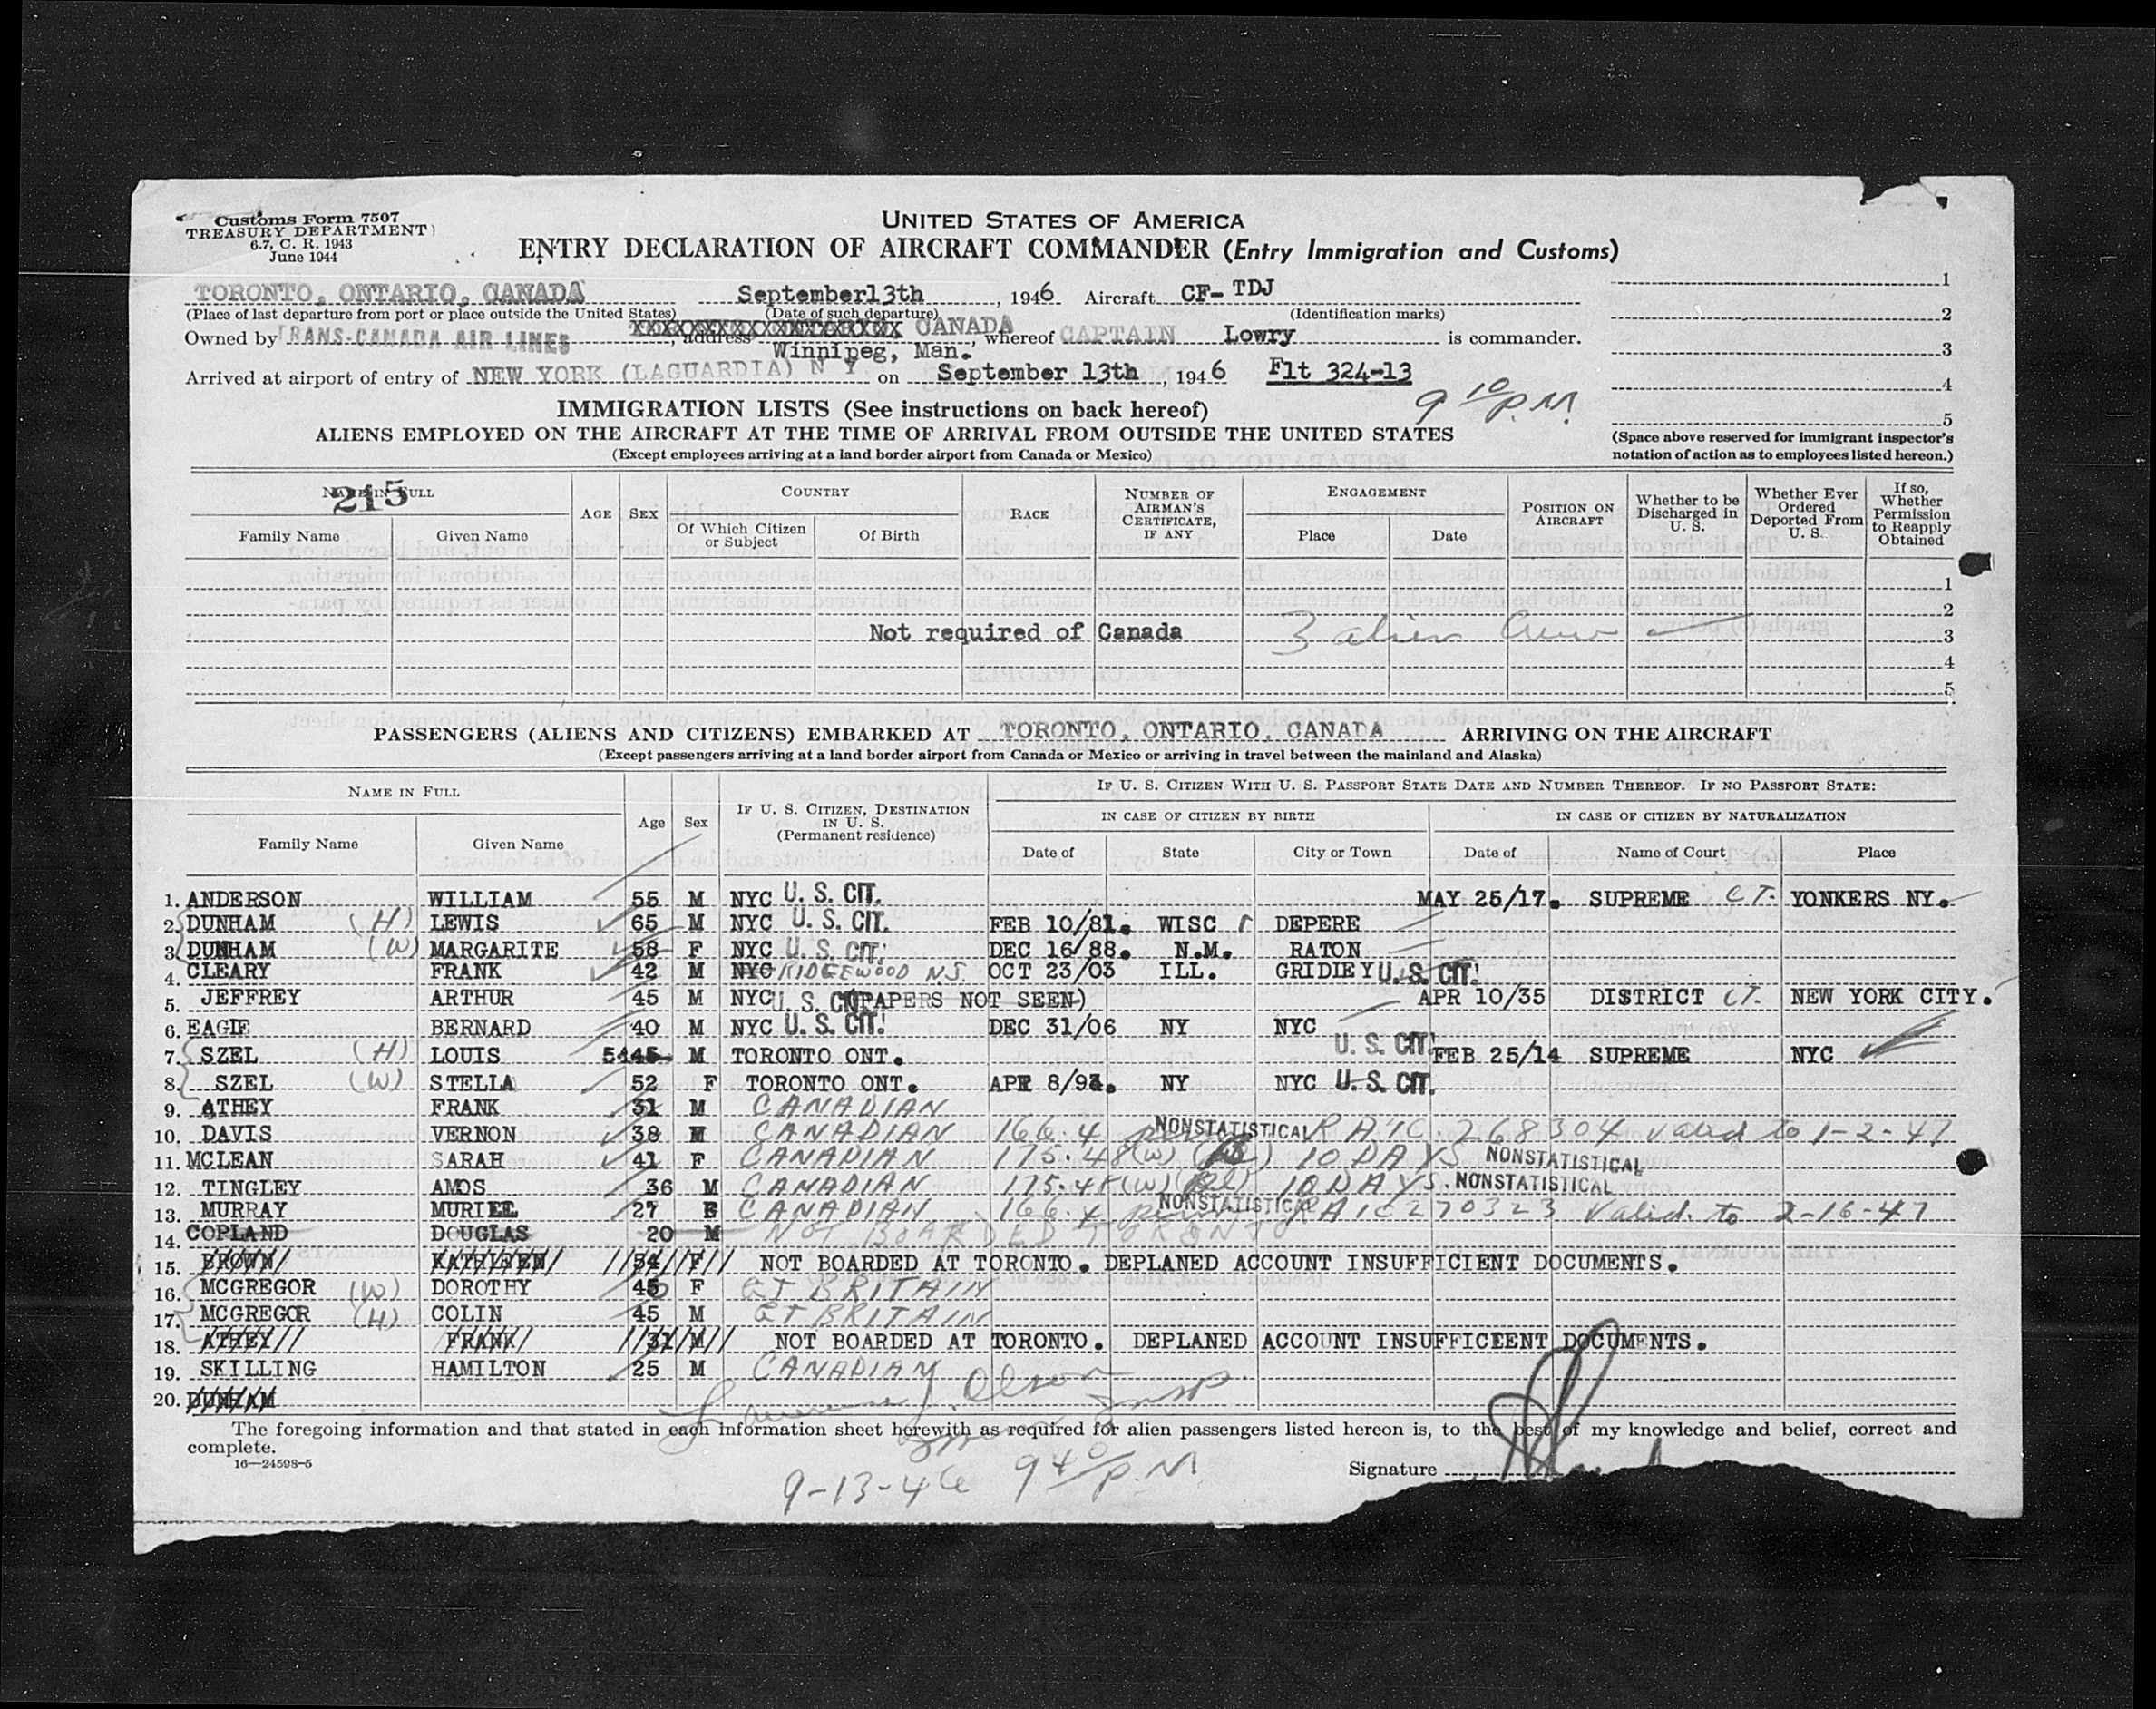 Customs Form 7507
TREASURY DEPARTMENT
6.7, C. R. 1943
June 1944
UNITED STATES OF AMERICA
ENTRY DECLARATION OF AIRCRAFT COMMANDER (Entry Immigration and Customs)
TORONTO, ONTARIO, CANADA September13th, 1946 Aircraft CF- TDJ 1
(Place of last departure from port or place outside the United States) (Date of such departure) (Identification marks) 2
Owned by TRANS-CANADA AIR LINES, address CANADA, whereof CAPTAIN Lowry is commander.
Winnipeg, Man. 3
Arrived at airport of entry of NEW YORK (LAGUARDIA) N Y on September 13th, 1946 Flt 324-13 4
9 10 P.M.
IMMIGRATION LISTS (See instructions on back hereof) 5
ALIENS EMPLOYED ON THE AIRCRAFT AT THE TIME OF ARRIVAL FROM OUTSIDE THE UNITED STATES
(Except employees arriving at a land border airport from Canada or Mexico)
(Space above reserved for immigrant inspector's
notation of action as to employees listed hereon.)
NAME IN FULL 215 AGE SEX COUNTRY RACE NUMBER OF AIRMAN'S CERTIFICATE, IF ANY ENGAGEMENT POSITION ON AIRCRAFT Whether to be Discharged in U. S. Whether Ever Ordered Deported From U. S. If so, Whether Permission to Reapply Obtained
Family Name Given Name Of Which Citizen or Subject Of Birth Place Date
1
2
Not required of Canada 3 alien crew 3
4
5
PASSENGERS (ALIENS AND CITIZENS) EMBARKED AT TORONTO, ONTARIO, CANADA ARRIVING ON THE AIRCRAFT
(Except passengers arriving at a land border airport from Canada or Mexico or arriving in travel between the mainland and Alaska)
NAME IN FULL Age Sex IF U. S. CITIZEN, DESTINATION IN U. S. (Permanent residence) IF U. S. CITIZEN WITH U. S. PASSPORT STATE DATE AND NUMBER THEREOF. IF NO PASSPORT STATE:
IN CASE OF CITIZEN BY BIRTH IN CASE OF CITIZEN BY NATURALIZATION
Family Name Given Name Date of State City or Town Date of Name of Court Place
1. ANDERSON WILLIAM 55 M NYC U. S. CIT. MAY 25/17. SUPREME CT. YONKERS NY.
2. DUNHAM (H) LEWIS 65 M NYC U. S. CIT. FEB 10/81. WISC DEPERE
3. DUNHAM (W) MARGARITE 58 F NYC U. S. CIT. DEC 16/88. N.M. RATON
4. CLEARY FRANK 42 M NYC RIDGEWOOD N.J. OCT 23/03 ILL. GRIDLEY U. S. CIT.
5. JEFFREY ARTHUR 45 M NYC U. S. CIT (PAPERS NOT SEEN) APR 10/35 DISTRICT CT. NEW YORK CITY.
6. EAGLE BERNARD 40 M NYC U. S. CIT. DEC 31/06 NY NYC
7. SZEL (H) LOUIS 5145 M TORONTO ONT. U. S. CIT. FEB 25/14 SUPREME NYC
8. SZEL (W) STELLA 52 F TORONTO ONT. APR 8/94. NY NYC U. S. CIT.
9. ATHEY FRANK 31 M CANADIAN
10. DAVIS VERNON 38 M CANADIAN 166.4 NONSTATISTICAL RAIC. 268304 valid to 1-2-47
11. MCLEAN SARAH 41 F CANADIAN 175.48(W) 10 DAYS NONSTATISTICAL
12. TINGLEY AMOS 36 M CANADIAN 175.48(W) 10 DAYS. NONSTATISTICAL
13. MURRAY MURIEL 27 F CANADIAN 166.4 NONSTATISTICAL RAIC 270323 Valid to 2-16-47
14. COPLAND DOUGLAS 20 M NOT BOARDED TORONTO
15. BROWN KATHLEEN 54 F NOT BOARDED AT TORONTO. DEPLANED ACCOUNT INSUFFICIENT DOCUMENTS.
16. MCGREGOR (W) DOROTHY 45 F GT BRITAIN
17. MCGREGOR (H) COLIN 45 M GT BRITAIN
18. ATHEY FRANK 31 M NOT BOARDED AT TORONTO. DEPLANED ACCOUNT INSUFFICIENT DOCUMENTS.
19. SKILLING HAMILTON 25 M CANADIAN
20. DUNHAM
Lawrence J. Olson
Imm Insp.
The foregoing information and that stated in each information sheet herewith as required for alien passengers listed hereon is, to the best of my knowledge and belief, correct and
complete.
16—24598-5
9-13-46 9 40 P.M.
Signature